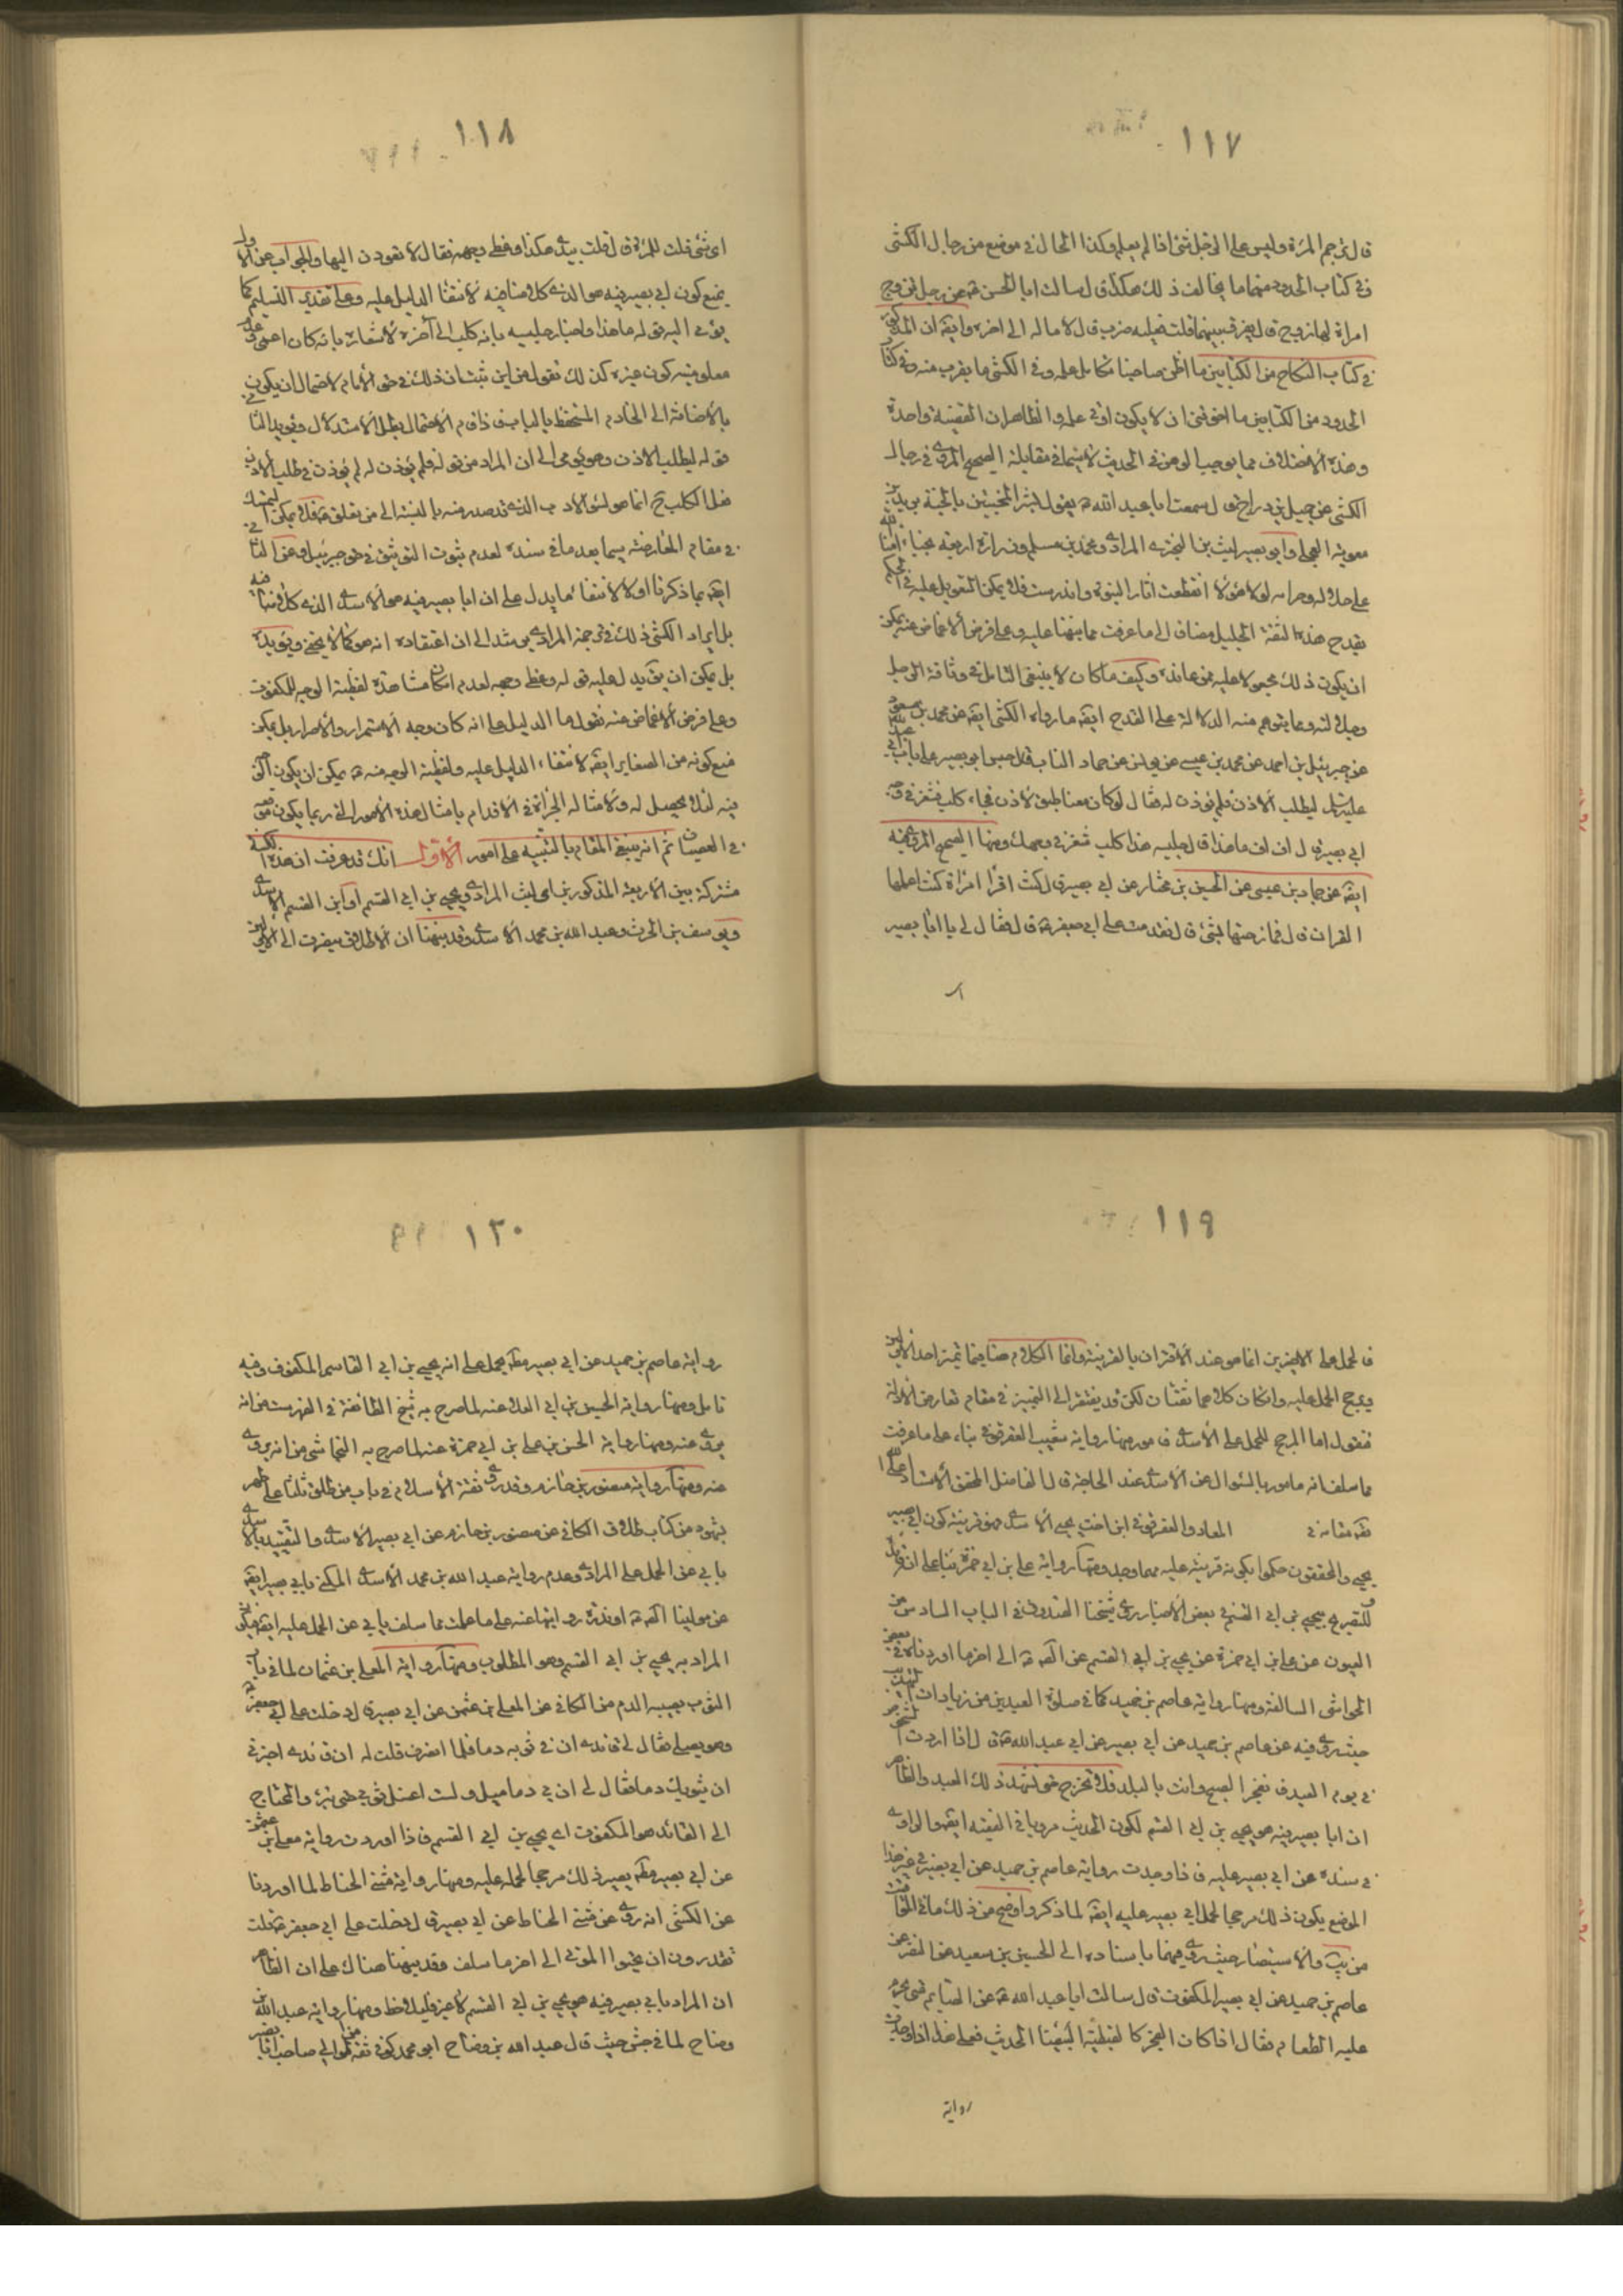 ١١٧
قال ترجم المرئة وليس على الرجل شئ اذا لم يعلم وكذا الحال في موضع من رجال الكشي
وفي كتاب الحدود منهما ما يخالف ذلك هكذا قال سالت ابا الحسن ع عن رجل تزوج
امراة لها زوج قال يفرق بينهما قلت فعليه ضرب قال لا ماله الى اخره وايضا ان المذكور
في كتاب النكاح من الكتابين ما اظن صاحبنا تكامل علمه وفي الكشي ما يقرب منه وفي كتاب
الحدود من الكتابين ما اخوفني ان لا يكون اوتي علمه والظاهر ان القضية واحدة
وهذه الاختلاف مما يوجب الوهن في الحديث لا سيما في مقابلة الصحيح المروي في رجال
الكشي عن جميل بن دراج قال سمعت ابا عبد الله ع يقول بشر المخبتين بالجنة بريد بن
معوية العجلي وابو بصير ليث بن البختري المرادي ومحمد بن مسلم وزرارة اربعة نجباء امناء الله
على حلاله وحرامه لولا هؤلاء انقطعت اثار النبوة واندرست فلا يمكن التعويل عليه في الحكم
بقدح هذا الثقة الجليل مضافا الى ما عرفت مما نبهنا عليه وعلى فرض الاغماض عنه يمكن
ان يكون ذلك مجعولا عليه ممن عانده وكيف ما كان لا ينبغي التامل في وثاقة الرجل
وجلالته ومما يتوهم منه الدلالة على القدح ايضا ما رواه الكشي ايضا عن محمد بن مسعود
عن جبرئيل بن احمد عن محمد بن عيسى عن يونس عن حماد الناب قال جلس ابو بصير على باب ابي عبد الله
عليه السلام ليطلب الاذن فلم يؤذن له فقال لو كان معنا طبق لاذن فجاء كلب فشغر في وجه
ابي بصير قال اف اف ما هذا قال جليسه هذا كلب شغر في وجهك ومنها الصحيح المروي فيه
ايضا عن حماد بن عيسى عن الحسين بن مختار عن ابي بصير قال كنت اقرأ امرأة كنت اعلمها
القران قال فمازحتها بشئ قال فقدمت على ابي جعفر ع قال فقال لي يا ابا بصير
١١٨
اي شئ قلت للمرئة قال قلت بيدي هكذا وغطى وجهه فقال لا تعودن اليها والجواب عن الاول
يمنع كون ابي بصير فيه هو الذي كلامنا فيه لانتفاء الدليل عليه وعلى تقدير التسليم كما
يؤمي اليه قوله ما هذا واخبار جليسه بانه كلب الى آخره لاشعاره بانه كان اعمى
معلومية كون غيره كذلك نقول من اين ثبت ان ذلك في حق الامام لاحتمال ان يكون
بالاضافة الى الخادم المتحفظ بالباب فاذا قام الاحتمال بطل الاستدلال ويؤيد الثاني
قوله ليطلب الاذن وهو يؤمي الى ان المراد من قوله فلم يؤذن له لم يؤذن في طلب الاذن
في مقام المعارضة سيما بعد ما في سنده لعدم ثبوت التوثيق في حق جبرئيل وعن الثاني
ايضا بما ذكرنا اولا لانتفاء ما يدل على ان ابا بصير فيه هو الاسدي الذي كلامنا فيه
بل ايراد الكشي ذلك في ترجمة المرادي مرشد الى ان اعتقاده انه هو كما لا يخفى ويؤيده
بل يمكن ان يؤيد لعليه قوله وغطى وجهه لعدم امكان مشاهدة تغطية الوجه للمكفوف
وعلى فرض الاغماض عنه نقول ما الدليل على انه كان وجه الاستمرار والاصرار بل يمكن
منع كونه من الصغاير ايضا لانتفاء الدليل عليه وتغطية الوجه منه ع يمكن ان يكون
فيه لئلا يحصل له ولامثاله الجرأة في الاقدام بامثال هذه الامور التي ربما يكون
في العصيان ثم انه ينبغي المقام بالتنبيه على امور الاول انك قد عرفت ان هذه الكنية
مشتركة بين الاربعة المذكورين اي ليث المرادي ويحيى بن ابي القسم او ابن القسم الاسدي
ويوسف بن الحرث وعبد الله بن محمد الاسدي وقد نبهنا ان الاطلاق ينصرف الى الاولين
١١٩
فالحمل على الاخيرين انما هو عند الاقتران بالقرينة وانما الكلام هنا فيما يميز احد الاولين
ويرجح الحمل عليه وان كان كلاهما ثقتان لكن قد يفتقر الى التمييز في مقام تعارض الادلة
فنقول اما المرجح للحمل على الاسدي فامور منها رواية شعيب العقرقوفي بناء على ما عرفت
مما سلف انه مامور بالسئوال عن الاسدي عند الحاجة قال الفاضل المحقق الاستاد اعلى الله
مقامه في المعاد والعقرقوفي ابن اخت يحيى الاسدي فهو قرينة كون ابي بصير
يحيى والمحققون حكموا بكونه قرينة عليه مهما وجد ومنها رواية علي بن ابي حمزة بناء على انه قائد
للتصريح بيحيى بن ابي القسم في بعض الاخبار روى شيخنا الصدوق في الباب السادس من
العيون عن علي بن ابي حمزة عن يحيى بن ابي القسم عن الصادق ع الى اخر ما اوردناه في بعض
الحواشي السالفة ومنها رواية عاصم بن حميد كما في صلوة العيدين من زيادات التهذيب
حيث روى فيه عن عاصم بن حميد عن ابي بصير عن ابي عبد الله ع قال اذا اردت الشخوص
في يوم العيد فانفجر الصبح وانت بالبلد فلا تخرج حتى تشهد ذلك العيد والظاهر
ان ابا بصير فيه هو يحيى بن ابي القسم لكون الحديث مرويا في الفقيه ايضا والراوي
في سنده عن ابي بصير عليه فاذا وجدت رواية عاصم بن حميد عن ابي بصير في غير هذا
الموضع يكون ذلك مرجحا لحمل ابي بصير عليه ايضا لما ذكر واوضح من ذلك ما في المواقيت
من يب والاستبصار حيث روى فيهما باسناده الى الحسين بن سعيد عن النضر عن
عاصم بن حميد عن ابي بصير المكفوف قال سالت ابا عبد الله ع عن الصايم متى يحرم
عليه الطعام فقال اذا كان الفجر كالقبطية البيضا الحديث فعلى هذا اذا وجدت
رواية
١٢٠
رواية عاصم بن حميد عن ابي بصير مطلقا يحمل على انه يحيى بن ابي القاسم المكفوف وفيه
تامل ومنها رواية الحسين بن ابي العلاء عنه لما صرح به شيخ الطائفة في الفهرست من انه
يروي عنه ومنها رواية الحسن بن علي بن ابي حمزة عنه لما صرح به النجاشي من انه يروي
عنه ومنها رواية منصور بن حازم وقد روى ثقة الاسلام في باب من طلق ثلثا على طهر
بشهود من كتاب طلاق الكافي عن منصور بن حازم عن ابي بصير الاسدي والتقييد بالاسدي
يابي عن الحمل على المرادي وعدم رواية عبد الله بن محمد الاسدي المكنى بابي بصير ايضا
عن مولينا الصادق ع او ندرة روايتها عنه على ما علمت مما سلف يابي عن الحمل عليه ايضا فيكون
المراد به يحيى بن ابي القسم وهو المطلوب ومنها رواية المعلى بن عثمان لما في باب
الثوب يصيبه الدم من الكافي عن المعلى بن عثمن عن ابي بصير قال دخلت على ابي جعفر ع
وهو يصلي فقال لي قائدي ان في ثوبه دما فلما انصرف قلت له ان قائدي اخبرني
ان بثوبك دما فقال لي ان بي دماميل ولست اغسل ثوبي حتى تبرء والمحتاج
الى القائد هو المكفوف اي يحيى بن ابي القسم فاذا اوردت رواية معلى بن عثمن
عن ابي بصير مطلقا يصير ذلك مرجحا لحمله عليه ومنها رواية مثنى الحناط لما اوردنا
عن الكشي انه روى عن مثنى الحناط عن ابي بصير قال دخلت على ابي جعفر ع قلت
تقدرون ان تحيوا الموتى الى اخر ما سلف وقد نبهنا هناك على ان الظاهر
ان المراد بابي بصير فيه هو يحيى بن ابي القسم لا غير فليلاحظ ومنها رواية عبد الله بن
وضاح لما في جش حيث قال عبد الله بن وضاح ابو محمد كوفي ثقة من الموالي صاحب ابا بصير